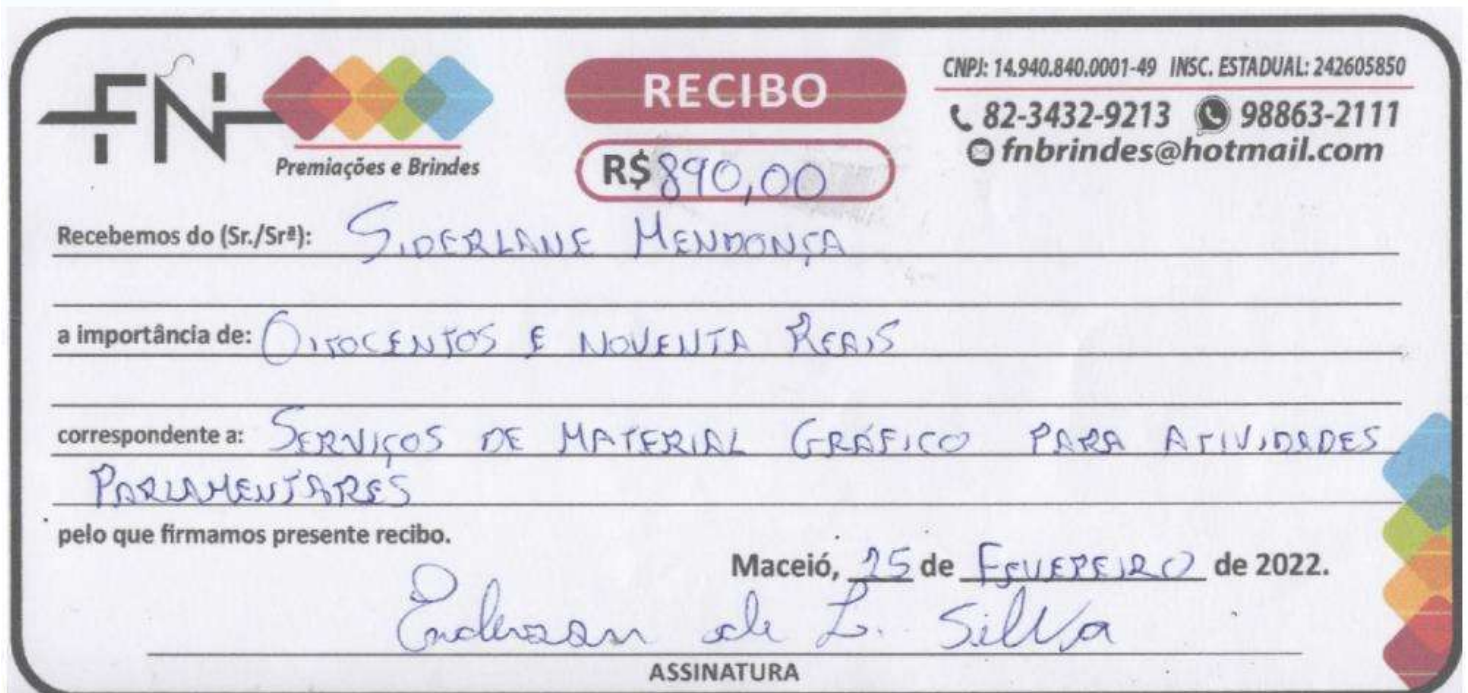 FN
Premiações e Brindes
RECIBO
R$ 890,00
CNPJ: 14.940.840.0001-49 INSC. ESTADUAL: 242605850
82-3432-9213 98863-2111
fnbrindes@hotmail.com
Recebemos do (Sr./Srª): SIDERLANE MENDONÇA
a importância de: OITOCENTOS E NOVENTA REAIS
correspondente a: SERVIÇOS DE MATERIAL GRÁFICO PARA ATIVIDADES
PARLAMENTARES
pelo que firmamos presente recibo.
Maceió, 25 de FEVEREIRO de 2022.
Enderson de L. Silva
ASSINATURA